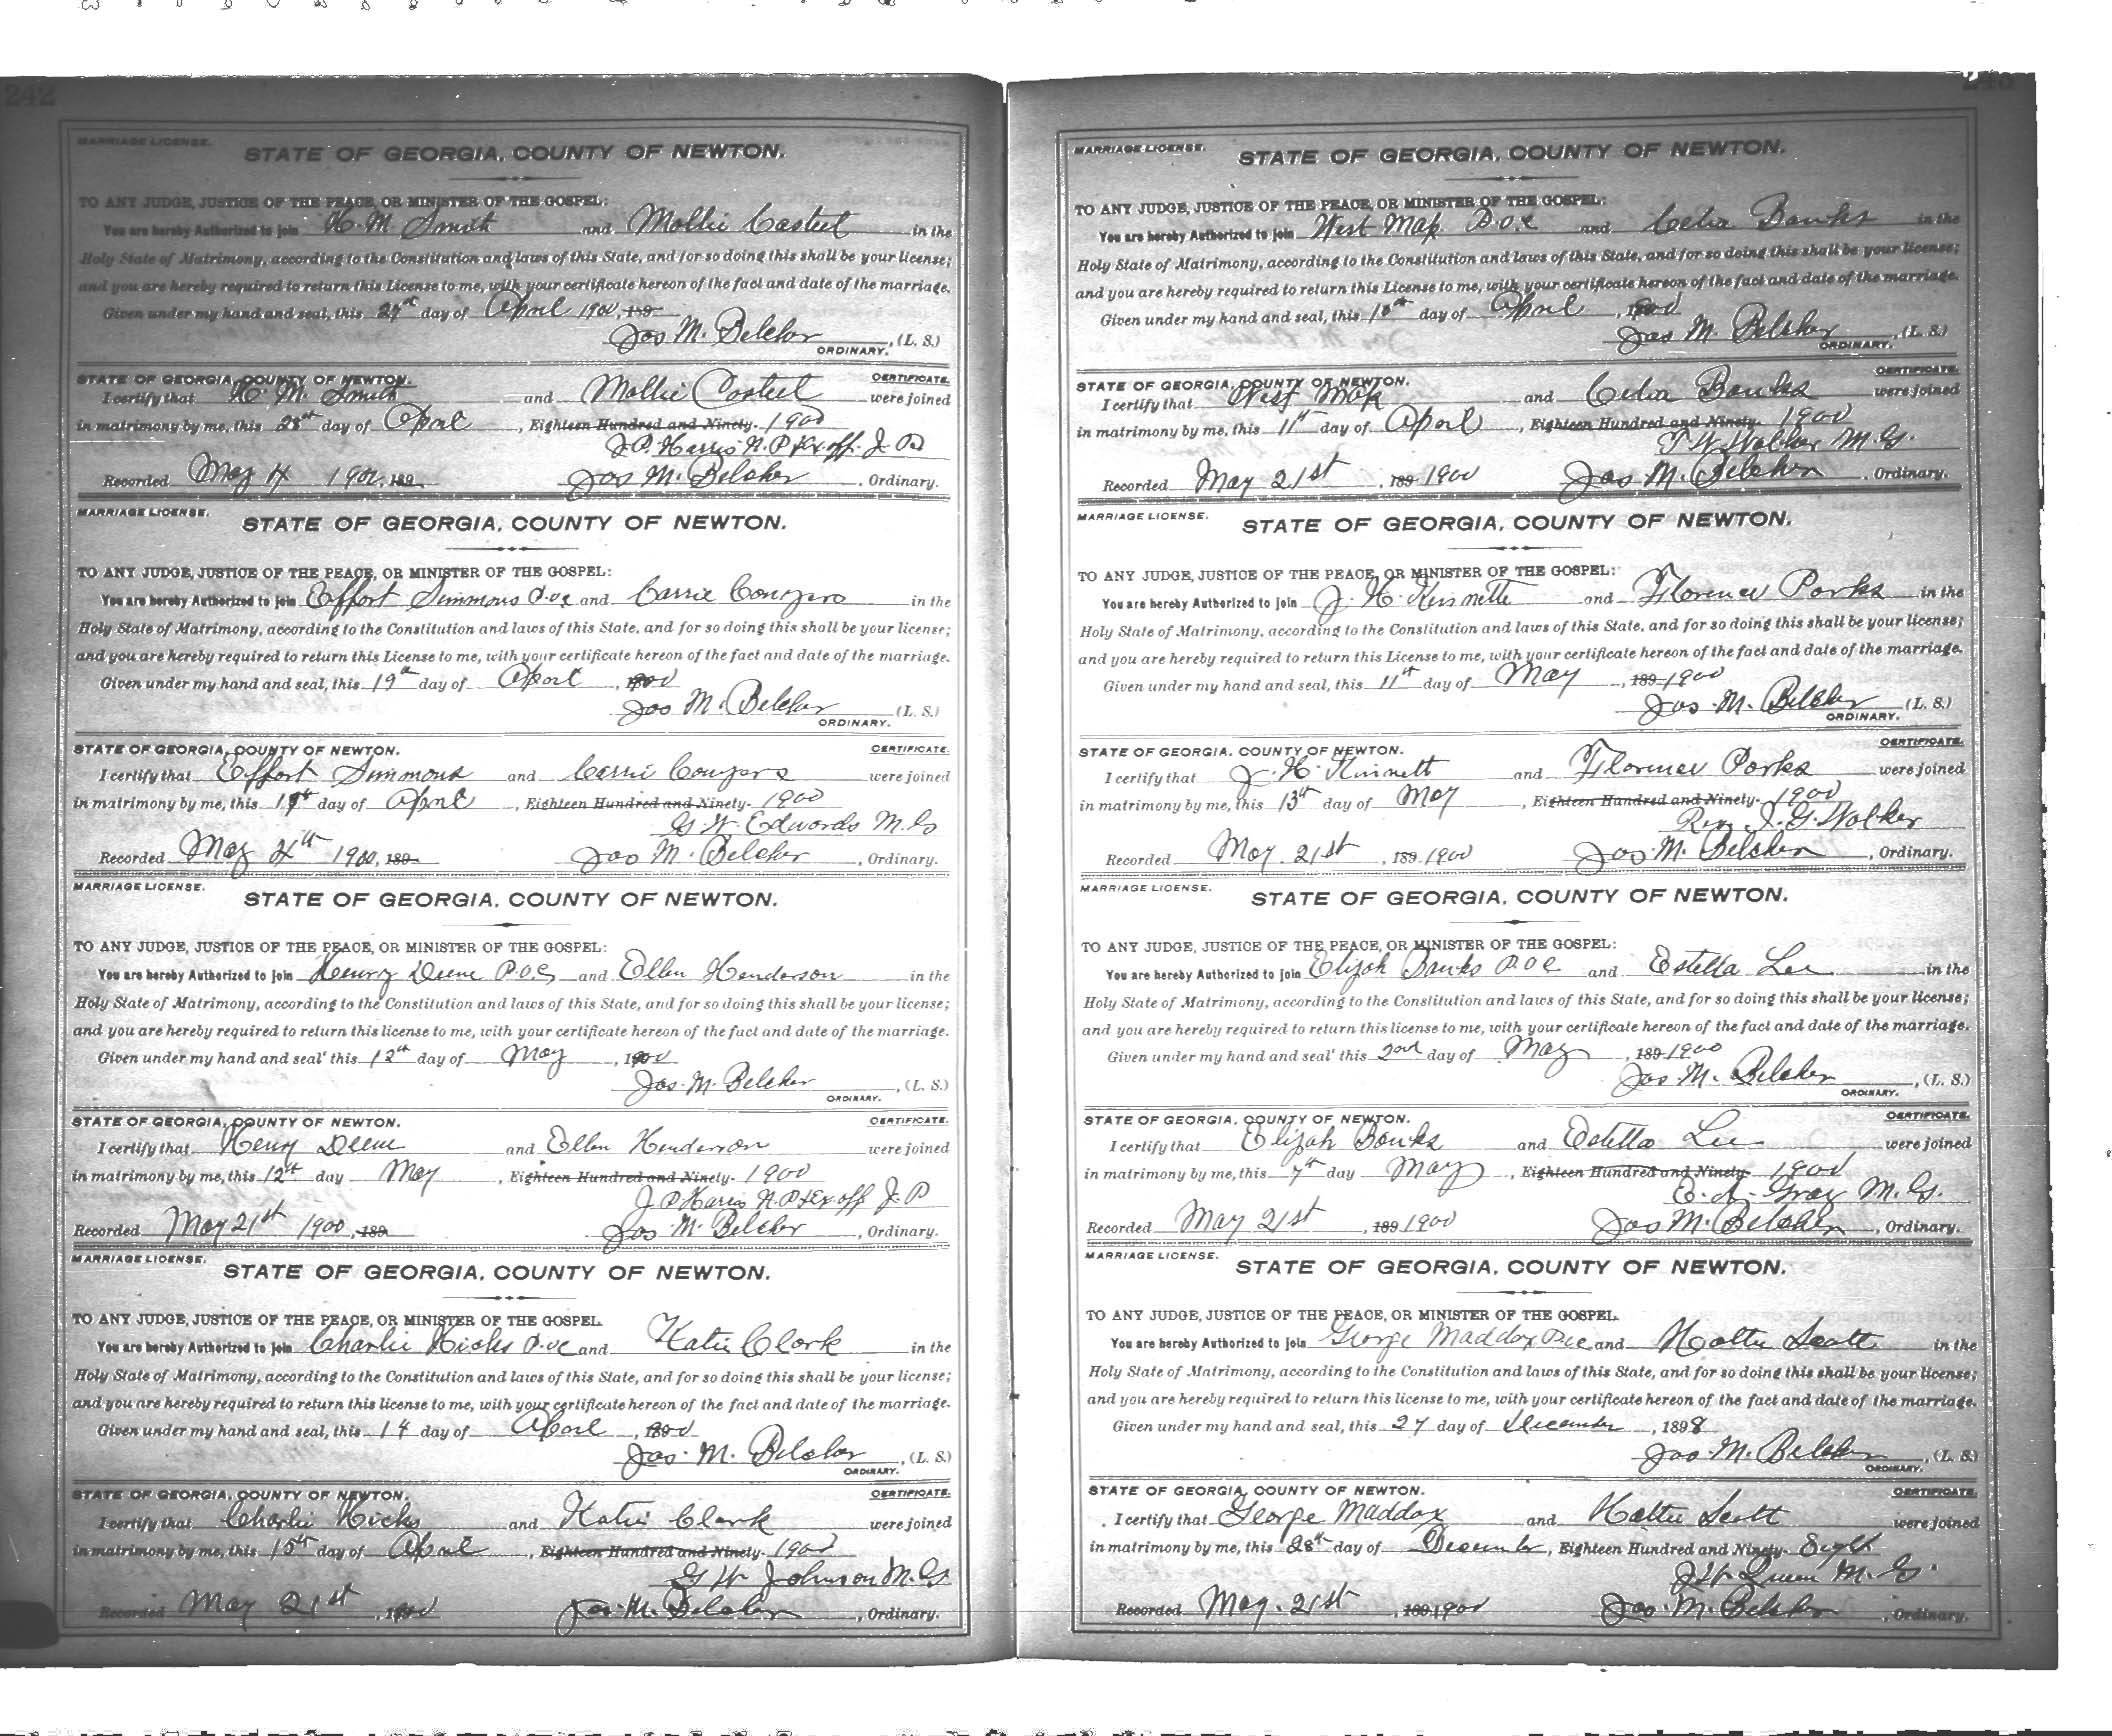 242
MARRIAGE LICENSE.
STATE OF GEORGIA, COUNTY OF NEWTON.
TO ANY JUDGE, JUSTICE OF THE PEACE, OR MINISTER OF THE GOSPEL:
You are hereby Authorized to join H. M. Smith and Mollie Casteel in the
Holy State of Matrimony, according to the Constitution and laws of this State, and for so doing this shall be your license;
and you are hereby required to return this License to me, with your certificate hereon of the fact and date of the marriage.
Given under my hand and seal, this day of April 1900, 189
Jos M. Belcher, (L. S.)
ORDINARY.
STATE OF GEORGIA, COUNTY OF NEWTON. CERTIFICATE.
I certify that H. M. Smith and Mollie Casteel were joined
in matrimony by me, this 28th day of April, Eighteen Hundred and Ninety- 1900
J. P. Harris N. P. & Ex off. J. P.
Recorded May 4 1900, 189 Jos M. Belcher, Ordinary.
MARRIAGE LICENSE.
STATE OF GEORGIA, COUNTY OF NEWTON.
TO ANY JUDGE, JUSTICE OF THE PEACE, OR MINISTER OF THE GOSPEL:
You are hereby Authorized to join Effort Simmons P.O.C and Carrie Conyers in the
Holy State of Matrimony, according to the Constitution and laws of this State, and for so doing this shall be your license;
and you are hereby required to return this License to me, with your certificate hereon of the fact and date of the marriage.
Given under my hand and seal, this 19th day of April, 1900
Jos M. Belcher (L. S.)
ORDINARY.
STATE OF GEORGIA, COUNTY OF NEWTON. CERTIFICATE.
I certify that Effort Simmons and Carrie Conyers were joined
in matrimony by me, this 19th day of April, Eighteen Hundred and Ninety- 1900
G. W. Edwards M. G
Recorded May 4th 1900, 189 Jos M. Belcher, Ordinary.
MARRIAGE LICENSE.
STATE OF GEORGIA, COUNTY OF NEWTON.
TO ANY JUDGE, JUSTICE OF THE PEACE, OR MINISTER OF THE GOSPEL:
You are hereby Authorized to join Henry Deene P.O.C and Ellen Henderson in the
Holy State of Matrimony, according to the Constitution and laws of this State, and for so doing this shall be your license;
and you are hereby required to return this license to me, with your certificate hereon of the fact and date of the marriage.
Given under my hand and seal this 12th day of May, 1900
Jos. M. Belcher, (L. S.)
ORDINARY.
STATE OF GEORGIA, COUNTY OF NEWTON. CERTIFICATE.
I certify that Henry Deene and Ellen Henderson were joined
in matrimony by me, this 12th day May, Eighteen Hundred and Ninety- 1900
J. P. Harris N. P. & Ex off J. P
Recorded May 21st 1900, 189 Jos M. Belcher, Ordinary.
MARRIAGE LICENSE.
STATE OF GEORGIA, COUNTY OF NEWTON.
TO ANY JUDGE, JUSTICE OF THE PEACE, OR MINISTER OF THE GOSPEL.
You are hereby Authorized to join Charlie Hicks P.O.C and Katie Clark in the
Holy State of Matrimony, according to the Constitution and laws of this State, and for so doing this shall be your license;
and you are hereby required to return this license to me, with your certificate hereon of the fact and date of the marriage.
Given under my hand and seal, this 14 day of April, 1900
Jos. M. Belcher, (L. S.)
ORDINARY.
STATE OF GEORGIA, COUNTY OF NEWTON. CERTIFICATE.
I certify that Charlie Hicks and Katie Clark were joined
in matrimony by me, this 15th day of April, Eighteen Hundred and Ninety- 1900
G W Johnson M. G
Recorded May 21st, 1900 Jos. M. Belcher, Ordinary.
MARRIAGE LICENSE.
STATE OF GEORGIA, COUNTY OF NEWTON.
TO ANY JUDGE, JUSTICE OF THE PEACE, OR MINISTER OF THE GOSPEL:
You are hereby Authorized to join West P.O.C and Celia Banks in the
Holy State of Matrimony, according to the Constitution and laws of this State, and for so doing this shall be your license;
and you are hereby required to return this License to me, with your certificate hereon of the fact and date of the marriage.
Given under my hand and seal, this 10th day of April, 1900
Jos M. Belcher, (L. S.)
ORDINARY.
STATE OF GEORGIA, COUNTY OF NEWTON. CERTIFICATE.
I certify that West and Celia Banks were joined
in matrimony by me, this 11th day of April, Eighteen Hundred and Ninety- 1900
T. W. Walker M. G.
Recorded May 21st, 189 1900 Jos M. Belcher, Ordinary.
MARRIAGE LICENSE.
STATE OF GEORGIA, COUNTY OF NEWTON.
TO ANY JUDGE, JUSTICE OF THE PEACE, OR MINISTER OF THE GOSPEL:
You are hereby Authorized to join J. H. Kinnette and Florence Parks in the
Holy State of Matrimony, according to the Constitution and laws of this State, and for so doing this shall be your license;
and you are hereby required to return this License to me, with your certificate hereon of the fact and date of the marriage.
Given under my hand and seal, this 11th day of May, 189 1900
Jos. M. Belcher (L. S.)
ORDINARY.
STATE OF GEORGIA, COUNTY OF NEWTON. CERTIFICATE.
I certify that J. H. Kinnett and Florence Parks were joined
in matrimony by me, this 13th day of May, Eighteen Hundred and Ninety- 1900
Rev J. G. Walker
Recorded May. 21st, 189 1900 Jos M. Belcher, Ordinary.
MARRIAGE LICENSE.
STATE OF GEORGIA, COUNTY OF NEWTON.
TO ANY JUDGE, JUSTICE OF THE PEACE, OR MINISTER OF THE GOSPEL:
You are hereby Authorized to join Elijah Banks P.O.C and Estella Lee in the
Holy State of Matrimony, according to the Constitution and laws of this State, and for so doing this shall be your license;
and you are hereby required to return this license to me, with your certificate hereon of the fact and date of the marriage.
Given under my hand and seal this 2nd day of May, 189 1900
Jos. M. Belcher, (L. S.)
ORDINARY.
STATE OF GEORGIA, COUNTY OF NEWTON. CERTIFICATE.
I certify that Elijah Banks and Estella Lee were joined
in matrimony by me, this 7th day May, Eighteen Hundred and Ninety 1900
E. A. Gray M. G.
Recorded May 21st, 189 1900 Jos M. Belcher, Ordinary.
MARRIAGE LICENSE.
STATE OF GEORGIA, COUNTY OF NEWTON.
TO ANY JUDGE, JUSTICE OF THE PEACE, OR MINISTER OF THE GOSPEL.
You are hereby Authorized to join George Maddox P.O.C and Hattie Scott in the
Holy State of Matrimony, according to the Constitution and laws of this State, and for so doing this shall be your license;
and you are hereby required to return this license to me, with your certificate hereon of the fact and date of the marriage.
Given under my hand and seal, this 27 day of December, 1898
Jos. M. Belcher, (L. S.)
ORDINARY.
STATE OF GEORGIA, COUNTY OF NEWTON. CERTIFICATE.
I certify that George Maddox and Hattie Scott were joined
in matrimony by me, this 28th day of December, Eighteen Hundred and Ninety- Eight
M. G.
Recorded May. 21st, 189 1900 Jos. M. Belcher, Ordinary.